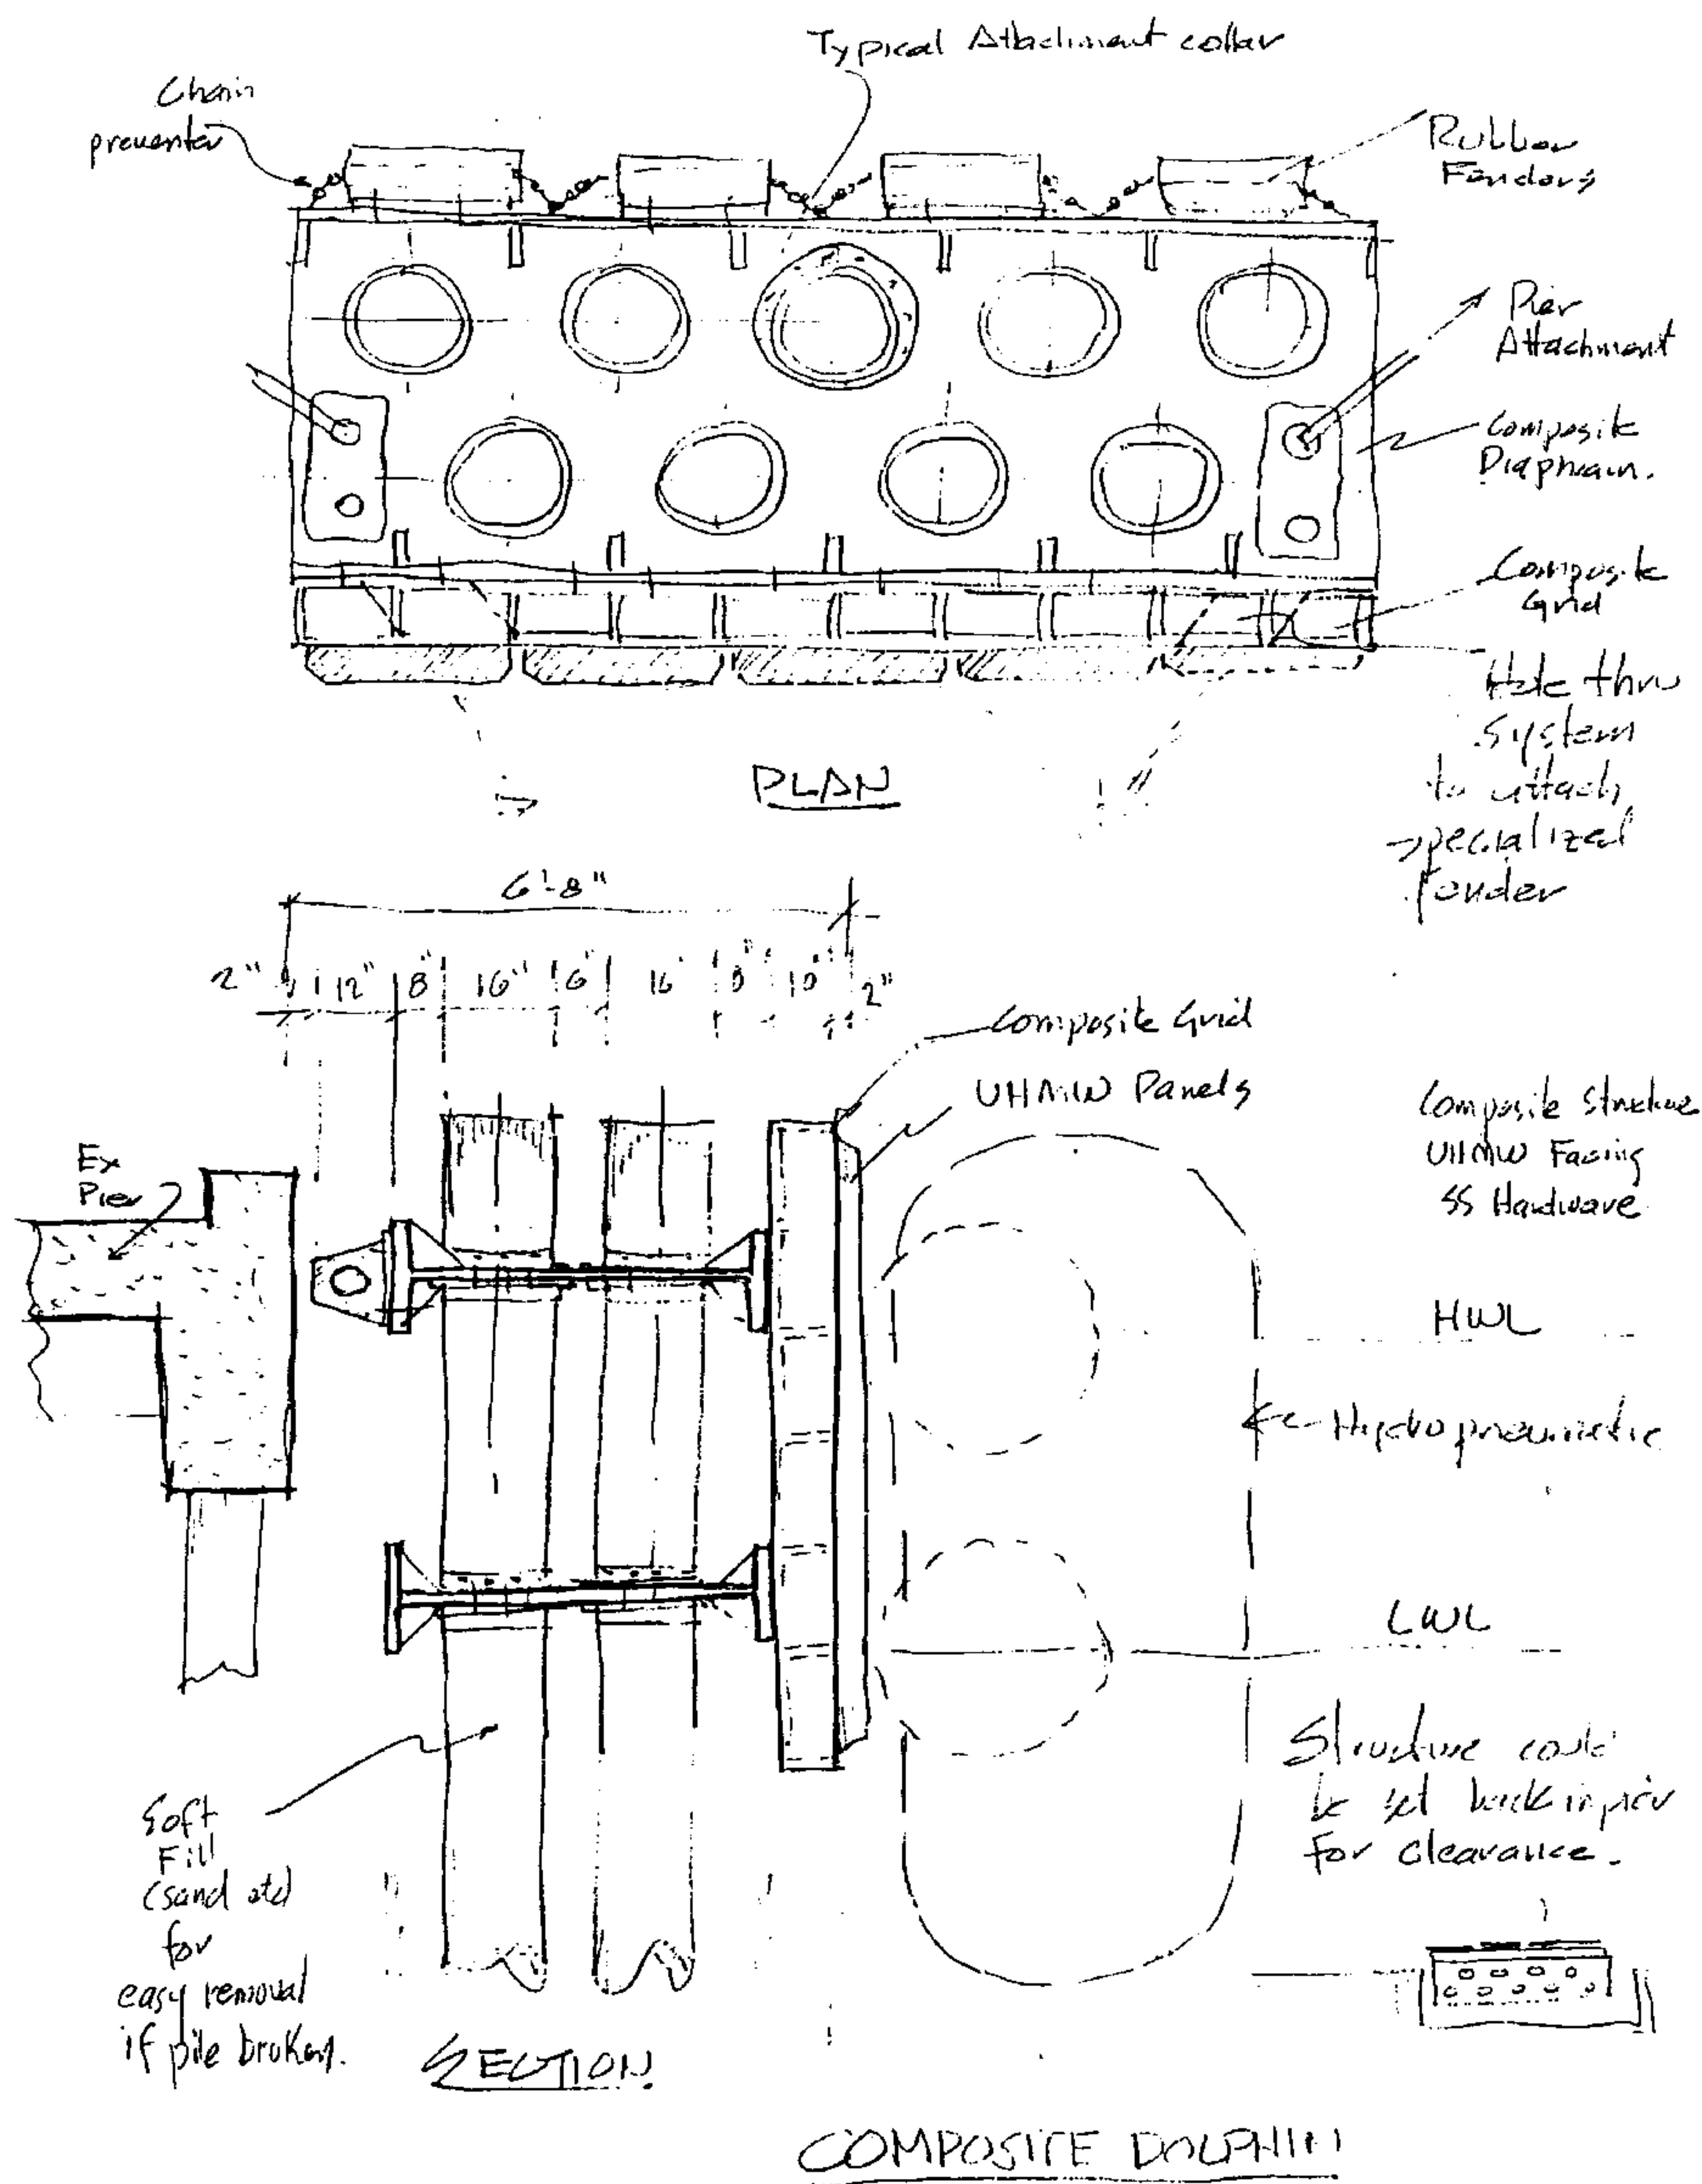 Typical Attachment collar
Chain
preventer
Rubber
Fenders
Pier
Attachment
Composite
Diaphram.
Composite
Grid
Hole thru
System
to attach
specialized
fender
PLAN
6'-8"
2" 12" 8" 16" 6" 16" 8" 10" 2"
Composite Grid
UHMW Panels
Composite Structure
UHMW Facing
SS Hardware
Ex
Pier
HWL
Hydropneumatic
LWL
Structure could
be set back in pier
For Clearance.
Soft
Fill
(sand etc)
for
easy removal
if pile broken.
SECTION
COMPOSITE DOLPHIN